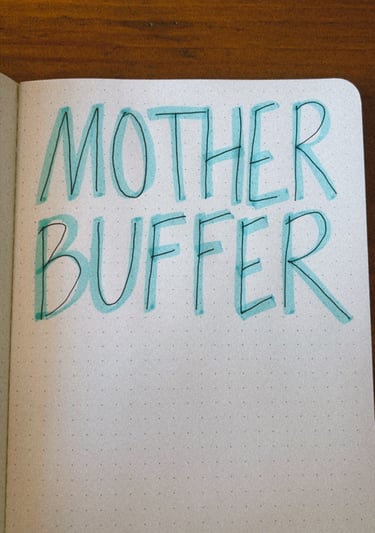 MOTHER
BUFFER